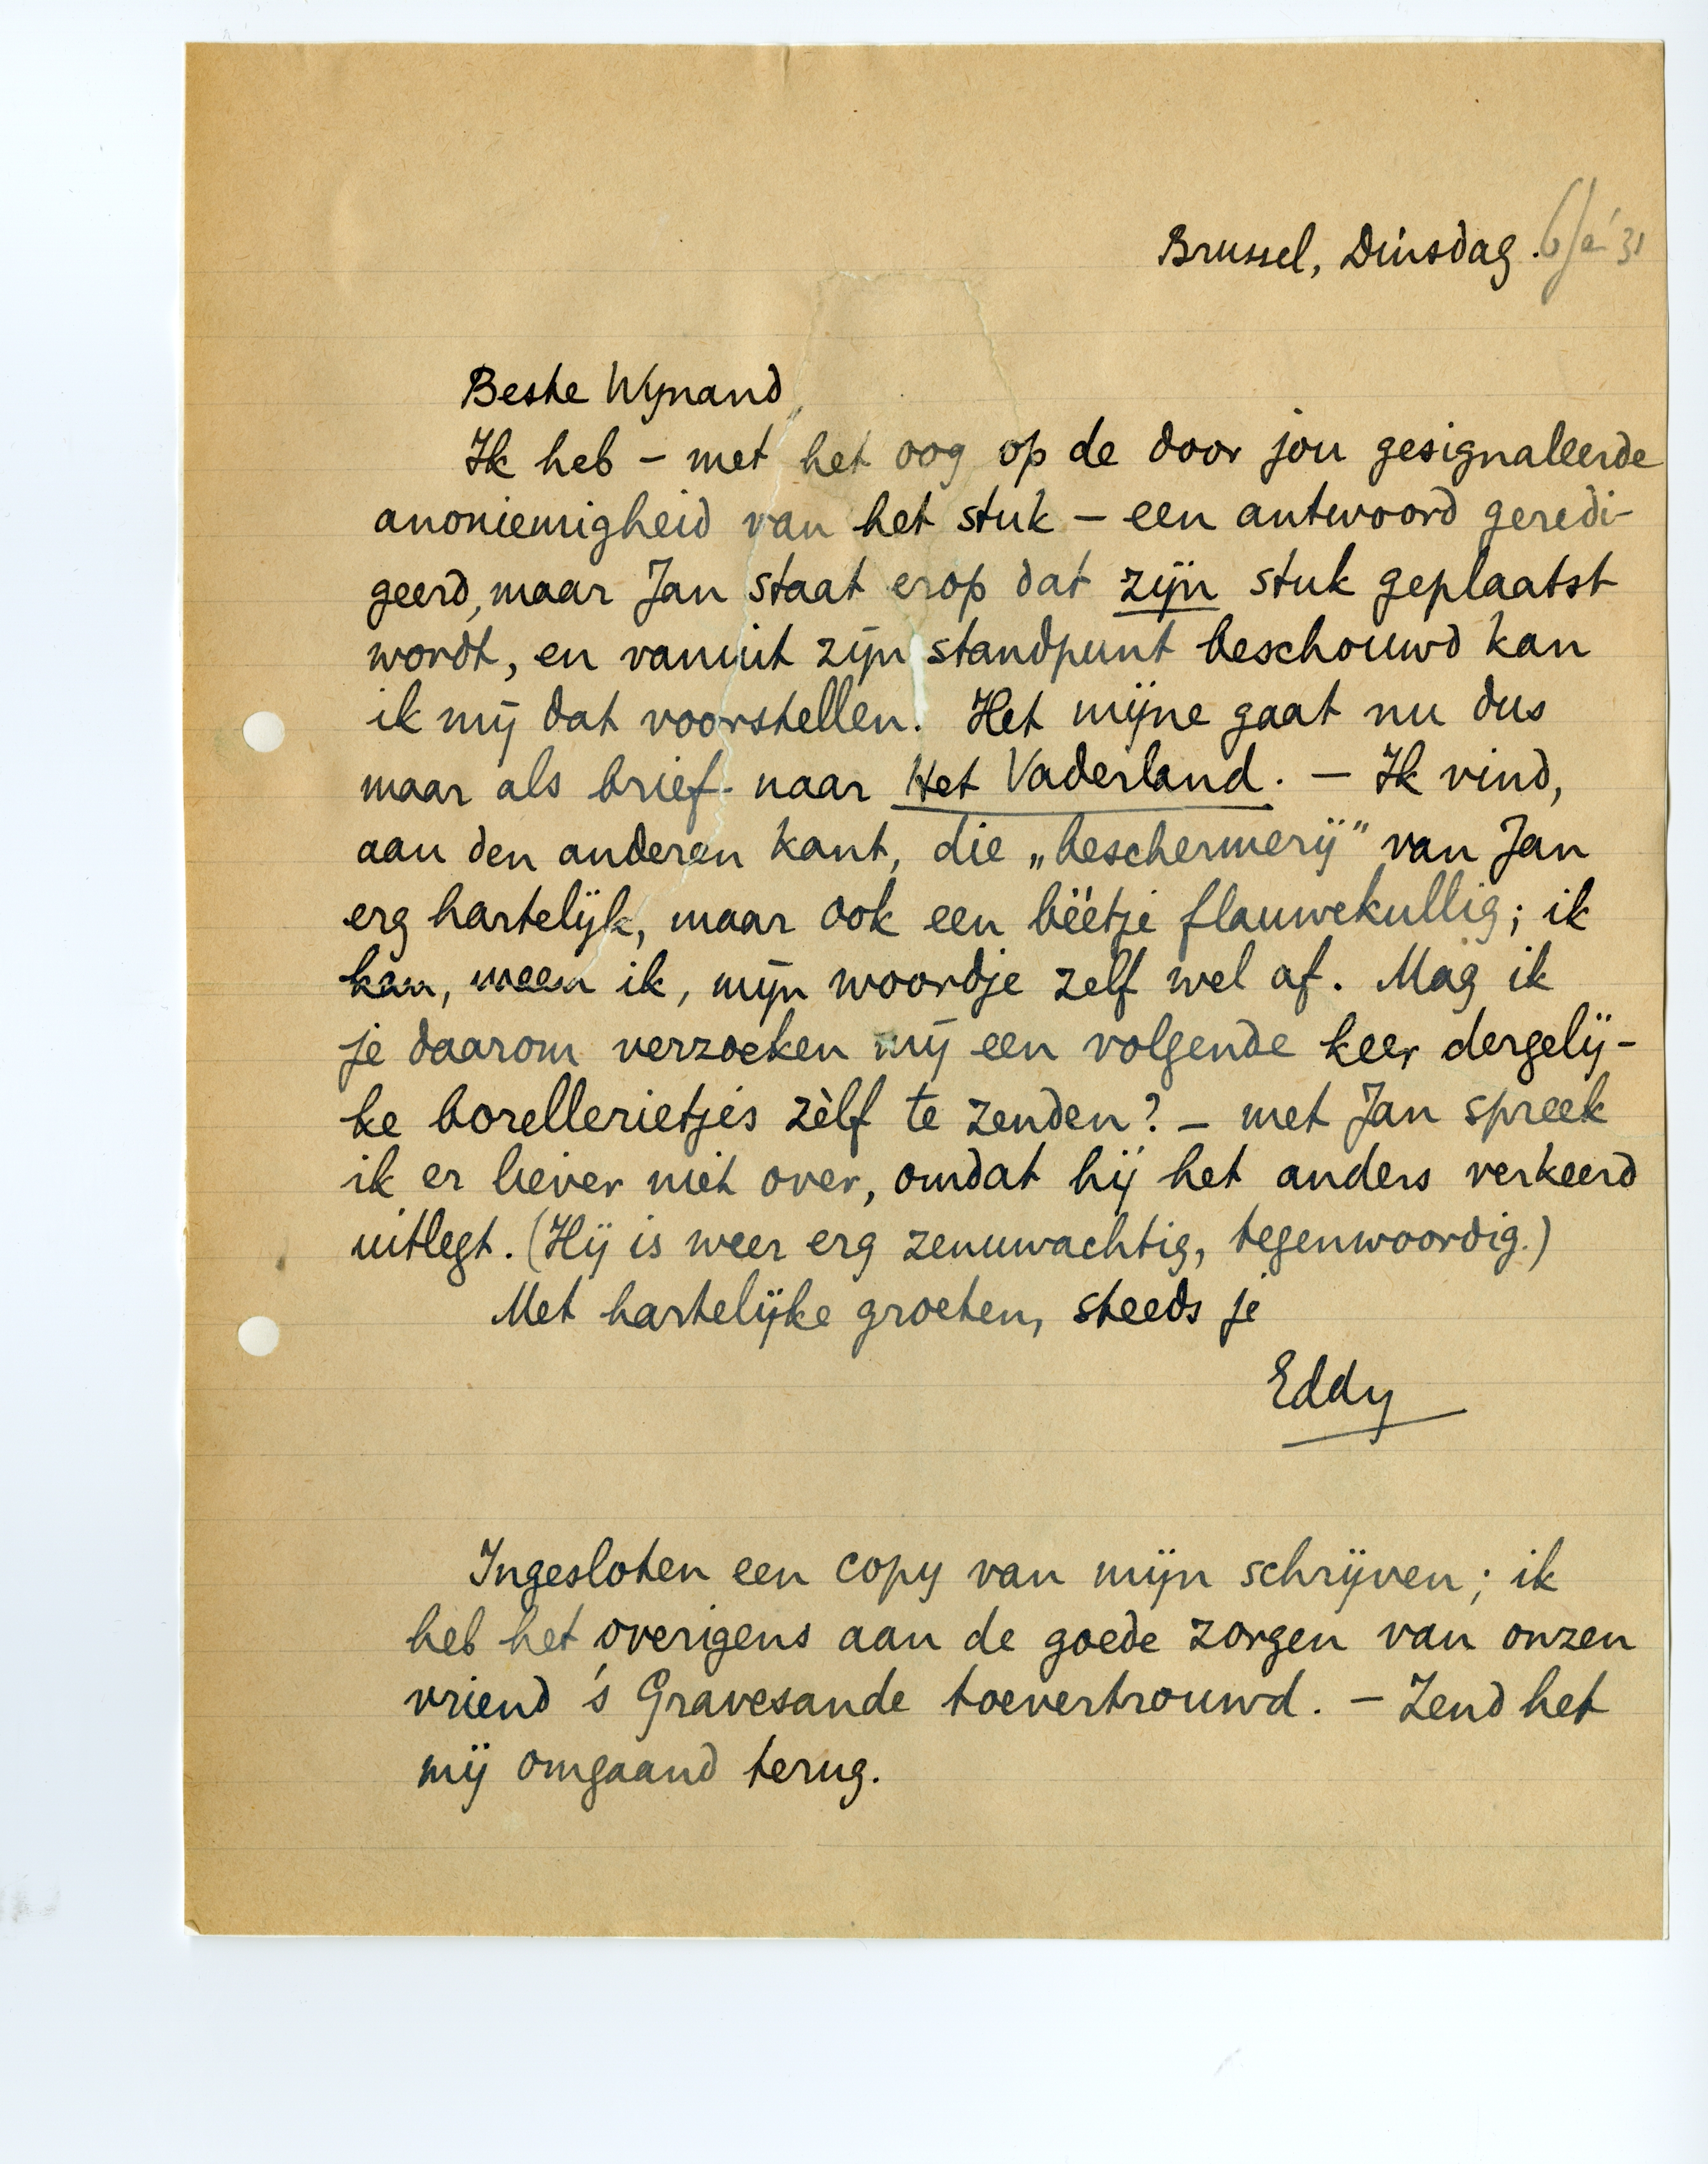 Brussel, Dinsdag. 6/1 '31
Beste Wijnand,
Ik heb – met het oog op de door jou gesignaleerde
anoniemigheid van het stuk – een antwoord geredi-
geerd, maar Jan staat erop dat zijn stuk geplaatst
wordt, en vanuit zijn standpunt beschouwd kan
ik mij dat voorstellen. Het mijne gaat nu dus
maar als brief naar Het Vaderland. – Ik vind,
aan den anderen kant, die „beschermerij” van Jan
erg hartelijk, maar ook een béétje flauwekullig; ik
kan, meen ik, mijn woordje zelf wel af. Mag ik
je daarom verzoeken mij een volgende keer dergelij-
ke borellerietjes zèlf te zenden? – met Jan spreek
ik er liever niet over, omdat hij het anders verkeerd
uitlegt. (Hij is weer erg zenuwachtig, tegenwoordig.)
Met hartelijke groeten, steeds je
Eddy
Ingesloten een copy van mijn schrijven; ik
heb het overigens aan de goede zorgen van onzen
vriend 's Gravesande toevertrouwd. – Zend het
mij omgaand terug.